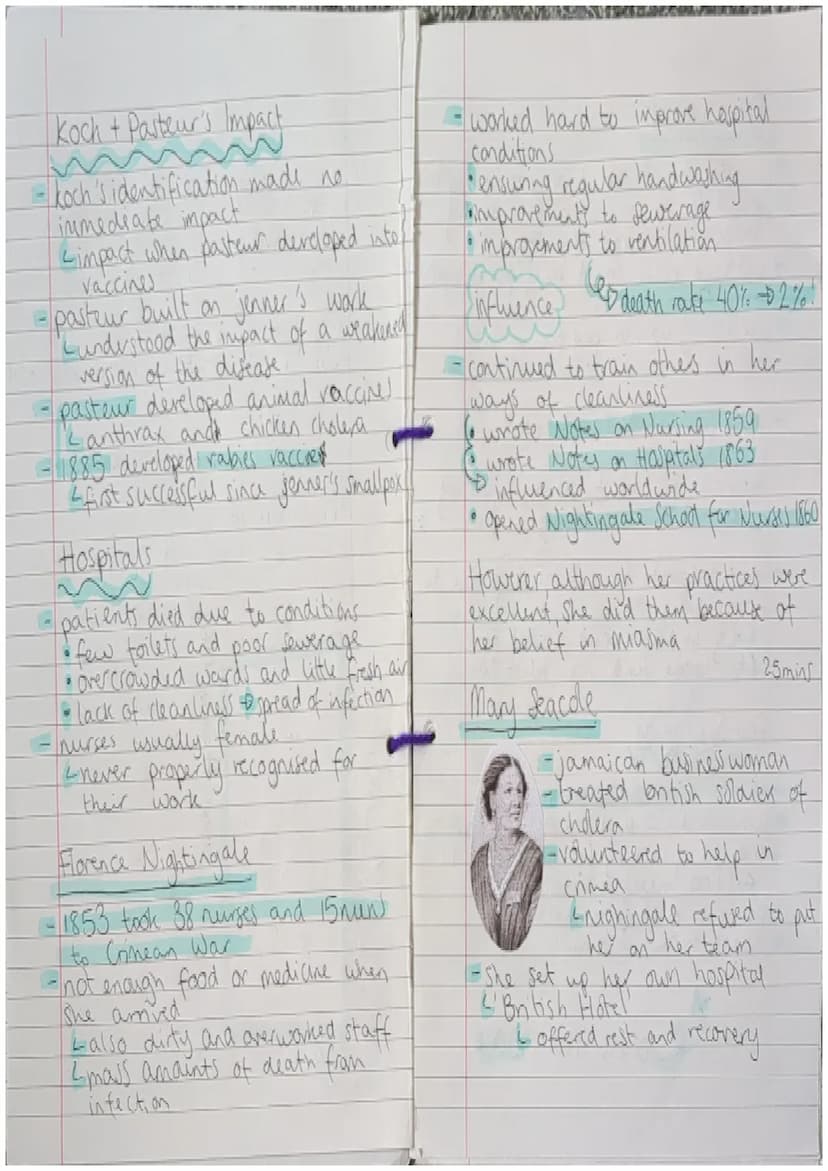 Koch + Pasteur's Impact
- Koch's identification made no
immediate impact
↳ impact when pasteur developed into
vaccines
- pasteur built on jenner's work
↳ understood the impact of a weakened
version of the disease
- pasteur developed animal vaccines
↳ anthrax and chicken cholera
- 1885 developed rabies vaccine
↳ first successful since jenner's smallpox
Hospitals
- patients died due to conditions
• few toilets and poor sewerage
• overcrowded wards and little fresh air
• lack of cleanliness → spread of infection
- nurses usually female
↳ never properly recognised for
their work
Florence Nightingale
- 1853 took 38 nurses and 15 nuns
to Crimean War
- not enough food or medicine when
she arrived
↳ also dirty and overworked staff
↳ mass amounts of death from
infection
- worked hard to improve hospital
conditions
• ensuring regular handwashing
• improvements to sewerage
• improvements to ventilation
↳ death rate 40% → 2%!
influence
- continued to train others in her
ways of cleanliness
• wrote Notes on Nursing 1859
• wrote Notes on Hospitals 1863
→ influenced worldwide
• opened Nightingale School for Nurses 1860
However although her practices were
excellent, she did them because of
her belief in miasma
25mins
Mary Seacole
- jamaican businesswoman
- treated british soldiers of
cholera
- volunteered to help in
crimea
↳ nighingale refused to put
her on her team
- she set up her own hospital
↳ 'British Hotel'
↳ offered rest and recovery